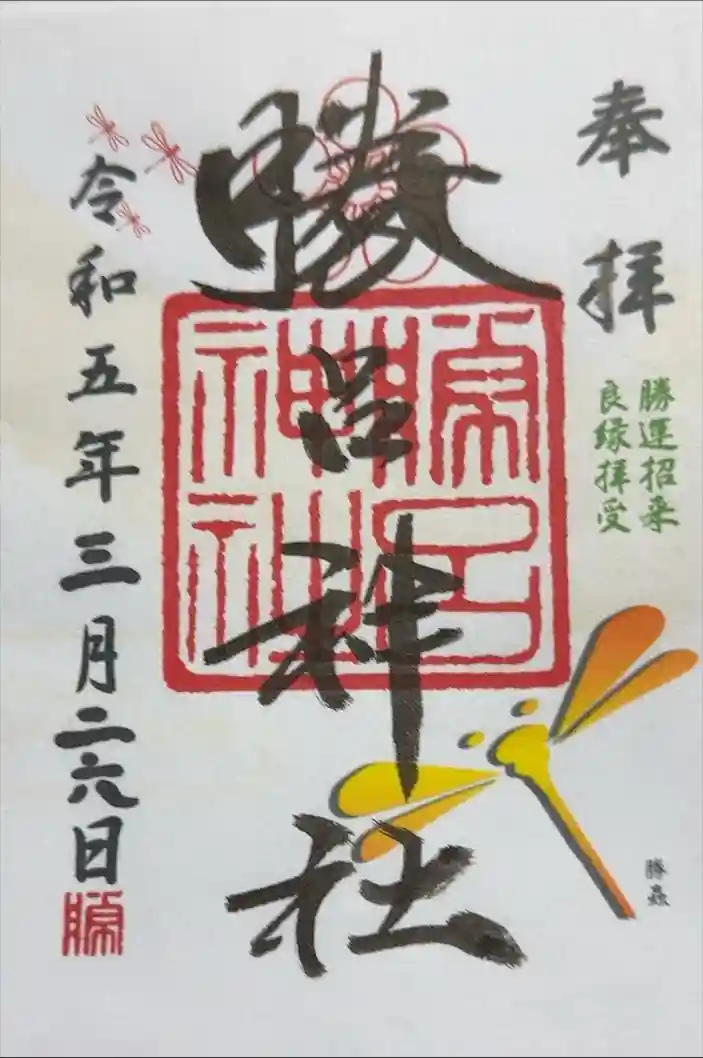 奉拝
勝運招来
良縁拝受
勝虫
勝呂神社
勝呂神社
令和五年三月二六日
勝